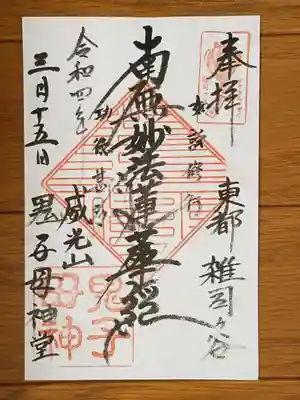 奉拝
東都 雑司ヶ谷
南無妙法蓮華経
威光山
令和四年
三月十五日 鬼子母神堂
鬼子
母神